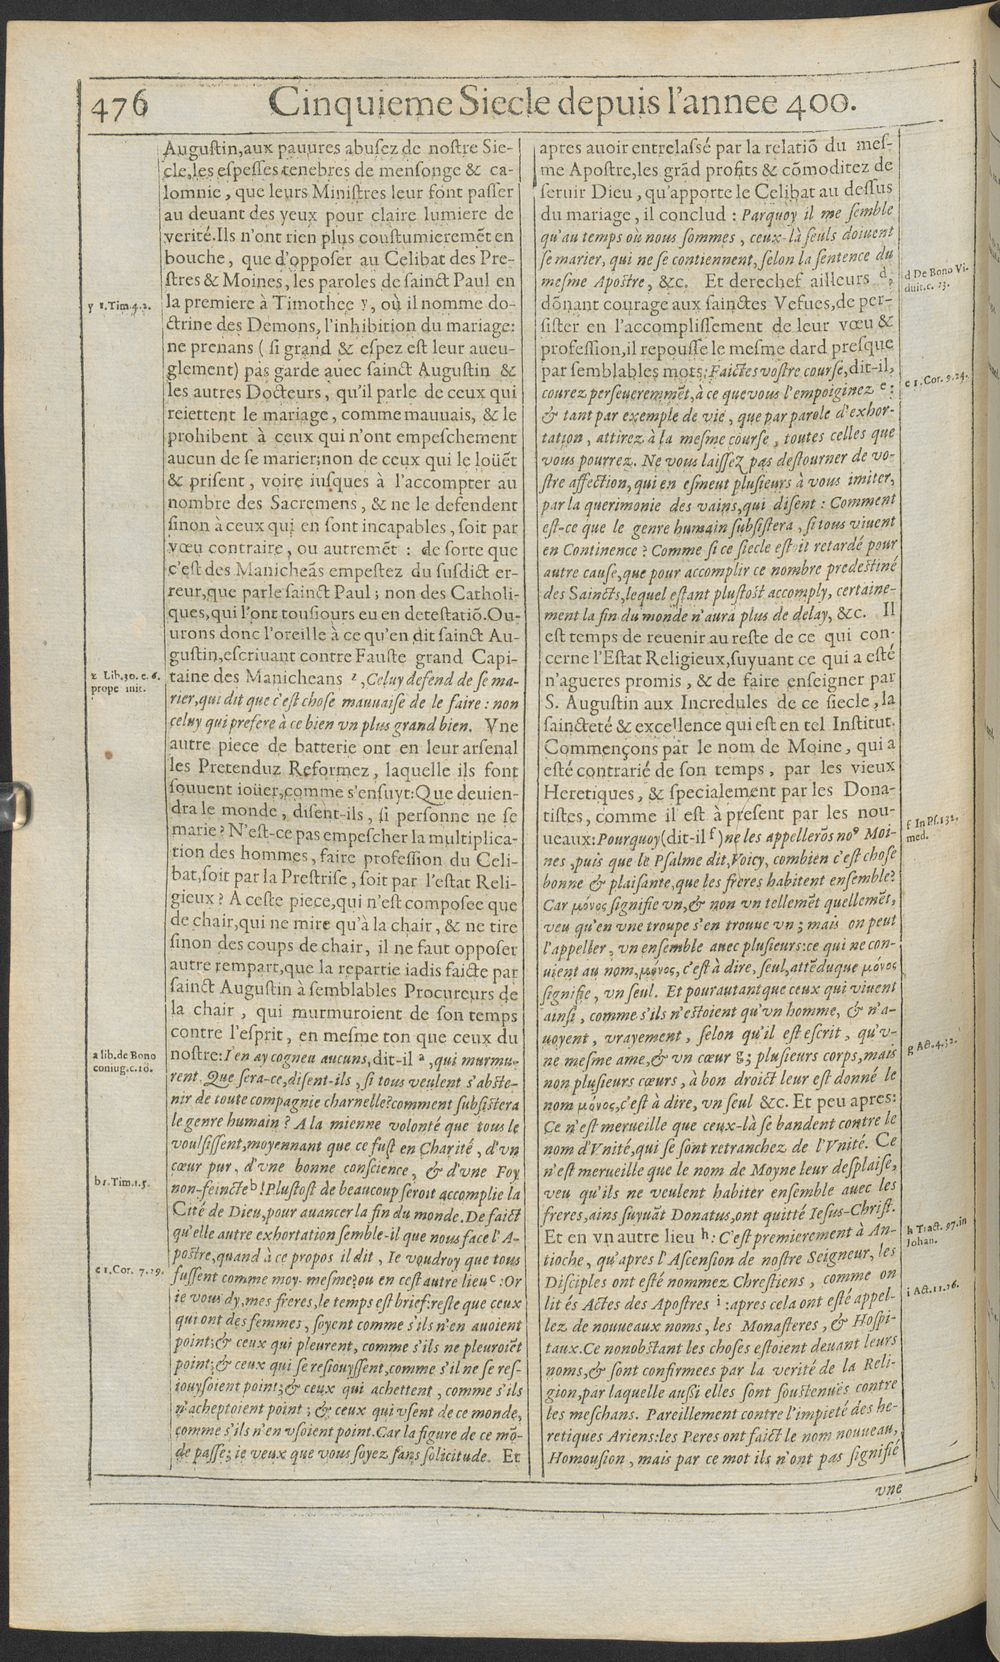 476
Cinquieme Siecle depuis l'annee 400.
Augustin, aux pauures abusez de nostre Sie-
cle, les espesses tenebres de mensonge & ca-
lomnie, que leurs Ministres leur font passer
au deuant des yeux pour claire lumiere de
verité. Ils n'ont rien plus coustumieremẽt en
bouche, que d'opposer au Celibat des Pre-
stres & Moines, les paroles de sainct Paul en
la premiere à Timothee y, où il nomme do-
ctrine des Demons, l'inhibition du mariage:
ne prenans (si grand & espez est leur aueu-
glement) pas garde auec sainct Augustin &
les autres Docteurs, qu'il parle de ceux qui
reiettent le mariage, comme mauuais, & le
prohibent à ceux qui n'ont empeschement
aucun de se marier; non de ceux qui le loüẽt
& prisent, voire iusques à l'accompter au
nombre des Sacremens, & ne le defendent
sinon à ceux qui en sont incapables, soit par
vœu contraire, ou autremẽt : de sorte que
c'est des Manicheãs empestez du susdict er-
reur, que parle sainct Paul; non des Catholi-
ques, qui l'ont tousiours eu en detestatiõ. Ou-
urons donc l'oreille à ce qu'en dit sainct Au-
gustin, escriuant contre Fauste grand Capi-
taine des Manicheans z, Celuy defend de se ma-
rier, qui dit que c'est chose mauuaise de le faire : non
celuy qui prefere à ce bien vn plus grand bien. Vne
autre piece de batterie ont en leur arsenal
les Pretenduz Reformez, laquelle ils font
souuent ioüer, comme s'ensuyt: Que deuien-
dra le monde, disent-ils, si personne ne se
marie? N'est-ce pas empescher la multiplica-
tion des hommes, faire profession du Celi-
bat, soit par la Prestrise, soit par l'estat Reli-
gieux? A ceste piece, qui n'est composee que
de chair, qui ne mire qu'à la chair, & ne tire
sinon des coups de chair, il ne faut opposer
autre rempart, que la repartie iadis faicte par
sainct Augustin à semblables Procureurs de
la chair, qui murmuroient de son temps
contre l'esprit, en mesme ton que ceux du
nostre: I'en ay cogneu aucuns, dit-il a, qui murmu-
rent. Que sera-ce, disent-ils, si tous veulent s'abste-
nir de toute compagnie charnelle? comment subsistera
le genre humain? A la mienne volonté que tous le
voulsissent, moyennant que ce fust en Charité, d'vn
cœur pur, d'vne bonne conscience, & d'vne Foy
non-feincte b! Plustost de beaucoup seroit accomplie la
Cité de Dieu, pour auancer la fin du monde. De faict
qu'elle autre exhortation semble-il que nous face l'A-
postre, quand à ce propos il dit, Ie voudroy que tous
fussent comme moy-mesme? ou en cest autre lieu c : Or
ie vous dy, mes freres, le temps est brief: reste que ceux
qui ont des femmes, soyent comme s'ils n'en auoient
point; & ceux qui pleurent, comme s'ils ne pleuroiẽt
point; & ceux qui se resiouyssent, comme s'il ne se res-
iouysoient point; & ceux qui achettent, comme s'ils
n'acheptoient point; & ceux qui vsent de ce monde,
comme s'ils n'en vsoient point. Car la figure de ce mõ-
de passe; ie veux que vous soyez sans solicitude. Et
y 1. Tim. 4. 2.
z Lib. 30. c. 6.
prope init.
a lib. de Bono
coniug. c. 10.
b 1. Tim. 1. 5.
c 1. Cor. 7. 29.
apres auoir entrelassé par la relatiõ du mes-
me Apostre, les grãd profits & cõmoditez de
seruir Dieu, qu'apporte le Celibat au dessus
du mariage, il conclud : Parquoy il me semble
qu'au temps où nous sommes, ceux-là seuls doiuent
se marier, qui ne se contiennent, selon la sentence du
mesme Apostre, &c. Et derechef ailleurs d,
dõnant courage aux sainctes Vefues, de per-
sister en l'accomplissement de leur vœu &
profession, il repousse le mesme dard presque
par semblables mots: Faictes vostre course, dit-il,
courez perseueremmẽt, à ce que vous l'empoiginez e :
& tant par exemple de vie, que par parole d'exhor-
tation, attirez à la mesme course, toutes celles que
vous pourrez. Ne vous laissez pas destourner de vo-
stre affection, qui en esmeut plusieurs à vous imiter,
par la querimonie des vains, qui disent : Comment
est-ce que le genre humain subsistera, si tous viuent
en Continence? Comme si ce siecle estoit retardé pour
autre cause, que pour accomplir ce nombre predestiné
des Saincts, lequel estant plustost accomply, certaine-
ment la fin du monde n'aura plus de delay, &c. Il
est temps de reuenir au reste de ce qui con-
cerne l'Estat Religieux, suyuant ce qui a esté
n'agueres promis, & de faire enseigner par
S. Augustin aux Incredules de ce siecle, la
saincteté & excellence qui est en tel Institut.
Commençons par le nom de Moine, qui a
esté contrarié de son temps, par les vieux
Heretiques, & specialement par les Dona-
tistes, comme il est à present par les nou-
ueaux: Pourquoy (dit-il f) ne les appellerõs noꝰ Moi-
nes, puis que le Psalme dit, Voicy, combien c'est chose
bonne & plaisante, que les freres habitent ensemble?
Car μόνος signifie vn, & non vn tellemẽt quellemẽt,
veu qu'en vne troupe s'en trouue vn; mais on peut
l'appeller, vn ensemble auec plusieurs: ce qui ne con-
uient au nom, μόνος, c'est à dire, seul, attẽdu que μόνος
signifie, vn seul. Et pourautant que ceux qui viuent
ainsi, comme s'ils n'estoient qu'vn homme, & n'a-
uoyent, vrayement, selon qu'il est escrit, qu'v-
ne mesme ame, & vn cœur g; plusieurs corps, mais
non plusieurs cœurs, à bon droict leur est donné le
nom μόνος, c'est à dire, vn seul &c. Et peu apres:
Ce n'est merueille que ceux-là se bandent contre le
nom d'Vnité, qui se sont retranchez de l'Vnité. Ce
n'est merueille que le nom de Moyne leur desplaise,
veu qu'ils ne veulent habiter ensemble auec les
freres, ains suyuãt Donatus, ont quitté Iesus-Christ.
Et en vn autre lieu h: C'est premierement à An-
tioche, qu'apres l'Ascension de nostre Seigneur, les
Disciples ont esté nommez Chrestiens, comme on
lit és Actes des Apostres i : apres cela ont esté appel-
lez de nouueaux noms, les Monasteres, & Hospi-
taux. Ce nonobstant les choses estoient deuant leurs
noms, & sont confirmees par la verité de la Reli-
gion, par laquelle aussi elles sont soustenuës contre
les meschans. Pareillement contre l'impieté des he-
retiques Ariens: les Peres ont faict le nom nouueau,
Homousion, mais par ce mot ils n'ont pas signifié
vne
d De Bono Vi-
duit. c. 23.
e 1. Cor. 9. 24.
f In Ps. 132.
med.
g Act. 4. 32.
h Tract. 97. in
Johan.
i Act. 11. 26.